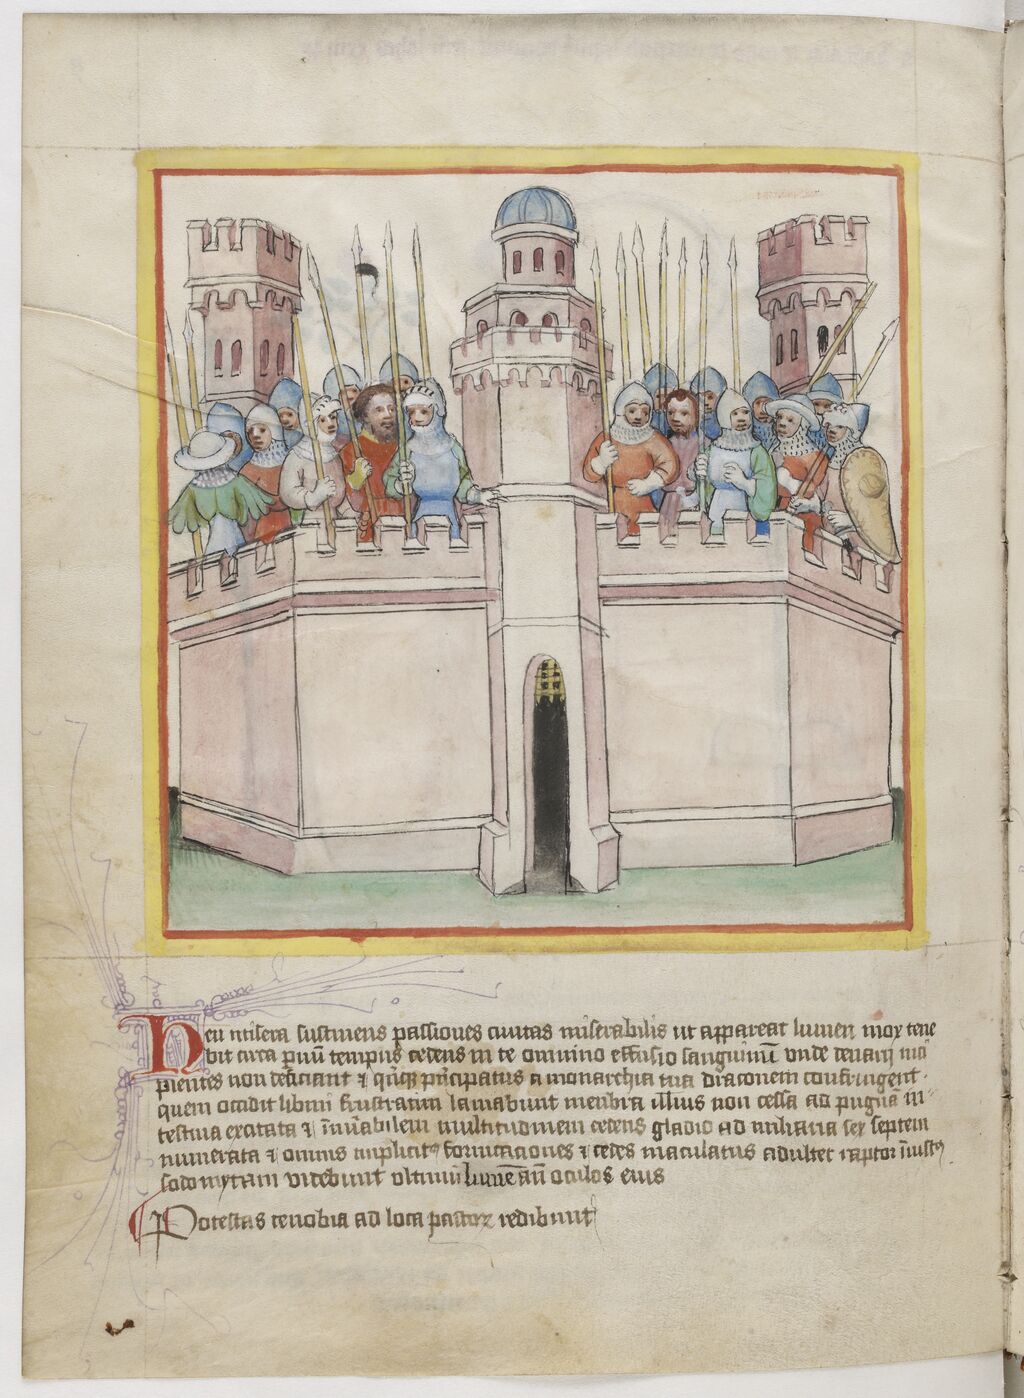 Heu misera sustinens passiones ciuitas miserabilis ut appareat lumen mox tene
bit circa puū tempus cedens in te omnino effusio sanguinū unde denarij
pientes non deficiant ⁊ principatus a monarchia tua draconem confringent.
quem occidit librū frustratim laniabunt menbra illius non cessa ad pugnā in
testina excitata ⁊ multitudinem cedens gladio ad miliaria sex septem
numerata ⁊ omnis fornicationes ⁊ cedes maculatus adulter raptor iniustꝰ
sodomytam videbunt ultimū lumē añ oculos eius
Potestas cenobia ad loca pastorꝝ redibunt